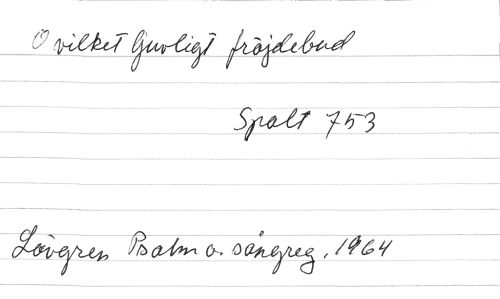 O vilket ljuvligt fröjdebud
Spalt 753
Lövgren Psalm o. sångreg. 1964